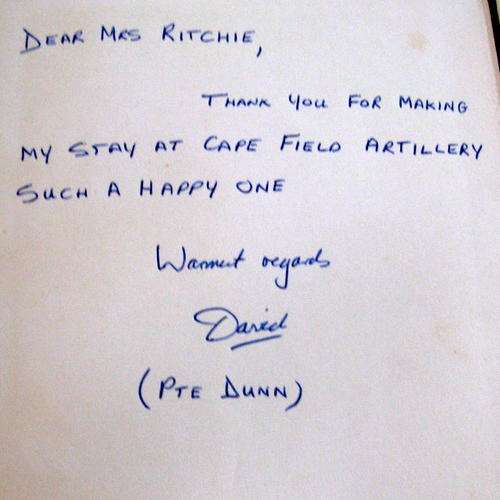 DEAR MRS RITCHIE,
THANK YOU FOR MAKING
MY STAY AT CAPE FIELD ARTILLERY
SUCH A HAPPY ONE
Warmest regards
David
(PTE DUNN)